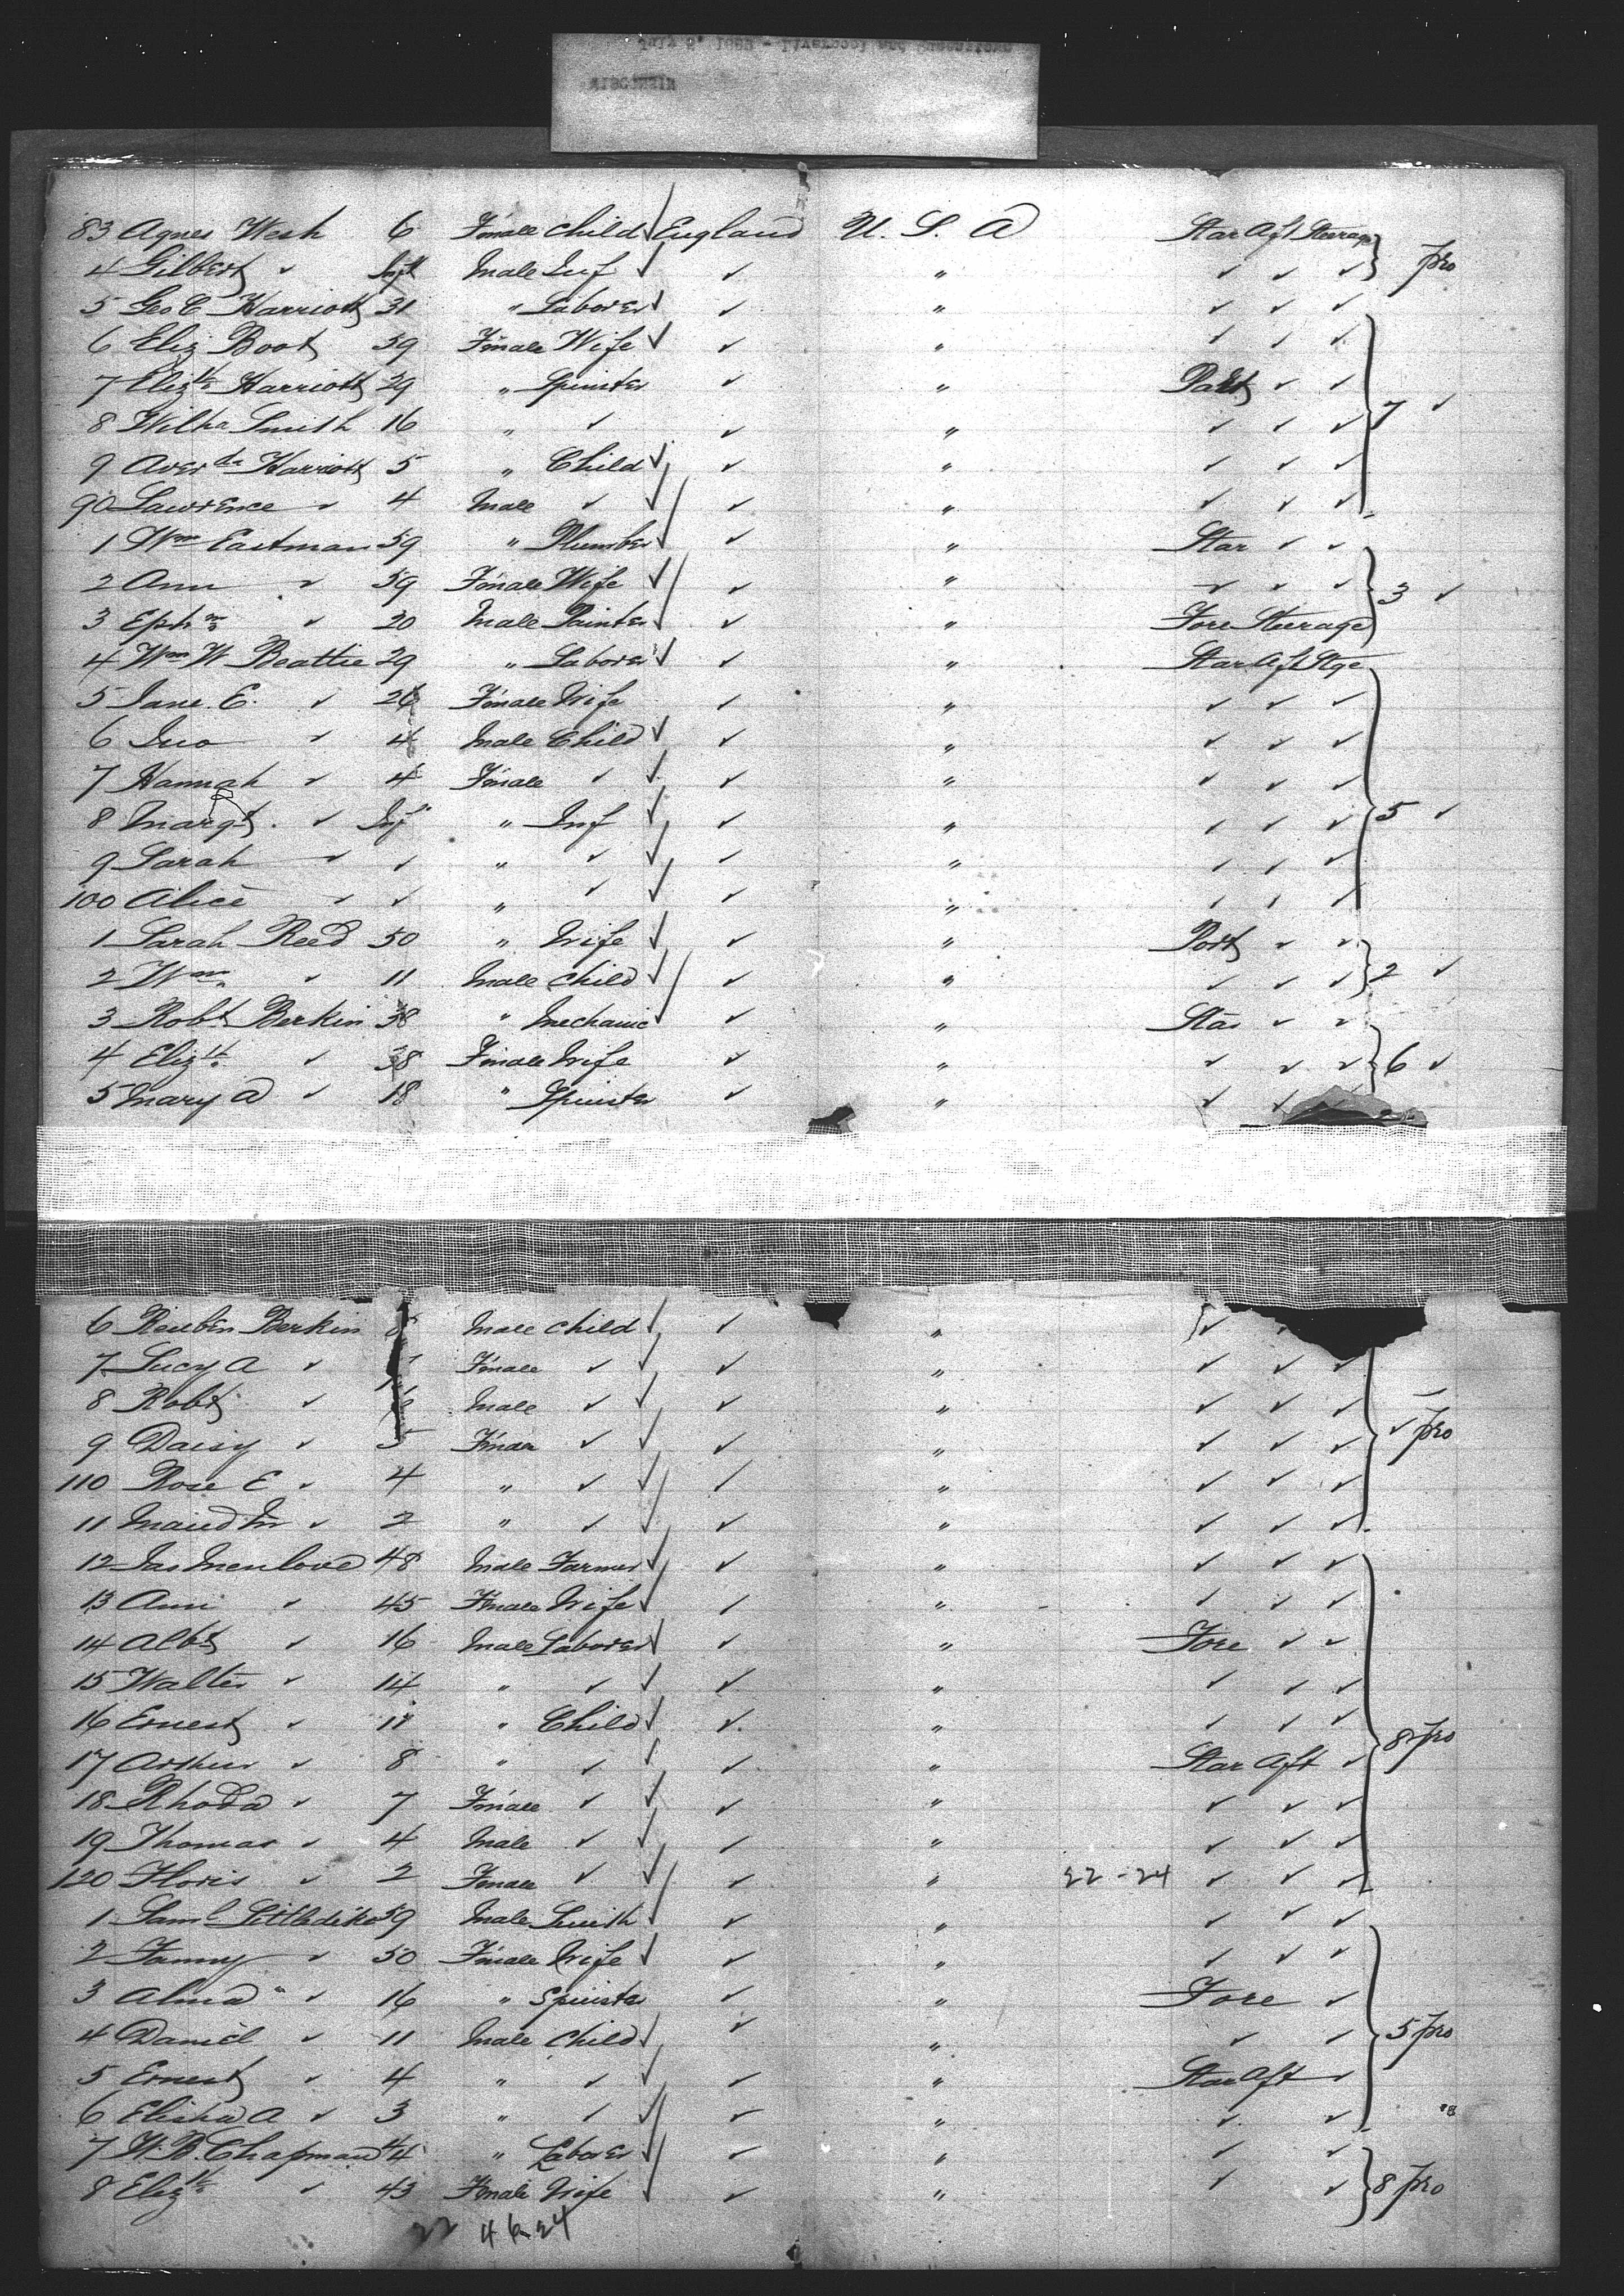 WISCONSIN
83 Agnes Wesh 6 Female Child ✓ England U. S. A Star Aft Steerage } pro
4 Gilbert ✓ Inft Male Inf ✓ ✓ " ✓ ✓ ✓
5 Geo C Harriott 31 " Laborer ✓ ✓ " ✓ ✓ ✓
6 Eliz Boot 59 Female Wife ✓ ✓ " ✓ ✓ ✓
7 Elizth Harriott 29 " Spinster ✓ " Port ✓ ✓
8 Wilha Smith 16 " ✓ ✓ " ✓ ✓ ✓ 7 ✓
9 Averda Harriott 5 " Child ✓ ✓ " ✓ ✓ ✓
90 Lawrence ✓ 4 Male ✓ ✓ ✓ " ✓ ✓ ✓
1 Wm Eastman 59 " Plumber ✓ ✓ " Star ✓ ✓
2 Ann ✓ 59 Female Wife ✓ ✓ " ✓ ✓ ✓ } 3 ✓
3 Ephm ✓ 20 Male Painter ✓ ✓ " Fore Steerage
4 Wm W Beattie 29 " Laborer ✓ ✓ " Star Aft Stge
5 Jane E. ✓ 26 Female Wife ✓ " ✓ ✓ ✓
6 Jno ✓ 4 Male Child ✓ ✓ " ✓ ✓ ✓
7 Hannah ✓ 4 Female ✓ ✓ ✓ " ✓ ✓ ✓
8 Margt. ✓ Inf " Inf ✓ ✓ " ✓ ✓ ✓ } 5 ✓
9 Sarah ✓ ✓ " ✓ ✓ ✓ " ✓ ✓ ✓
100 Alice ✓ ✓ " ✓ ✓ ✓ " ✓ ✓ ✓
1 Sarah Reed 50 " Wife ✓ ✓ " Port ✓ ✓
2 Wm ✓ 11 Male Child ✓ ✓ " ✓ ✓ ✓ } 2 ✓
3 Robt Berkin 38 " Mechanic ✓ ✓ " Star ✓ ✓
4 Elizth ✓ 38 Female Wife ✓ " ✓ ✓ ✓ } 6 ✓
5 Mary A ✓ 18 " Spinster ✓ " ✓ ✓
6 Reuben Berkin 8 Male Child ✓ ✓ " ✓
7 Lucy A ✓ Female ✓ ✓ ✓ " ✓ ✓ ✓
8 Robt ✓ 6 Male ✓ ✓ ✓ " ✓ ✓ ✓
9 Daisy ✓ 5 Female ✓ ✓ ✓ " ✓ ✓ ✓ } ✓ pro
110 Rose E ✓ 4 " ✓ ✓ ✓ " ✓ ✓ ✓
11 Maud M ✓ 2 " ✓ ✓ ✓ " ✓ ✓ ✓
12 Jas Menlove 48 Male Farmer ✓ ✓ " ✓ ✓ ✓
13 Ann ✓ 45 Female Wife ✓ ✓ " ✓ ✓ ✓
14 Albt ✓ 16 Male Laborer ✓ ✓ " Fore ✓ ✓
15 Walter ✓ 14 " ✓ ✓ ✓ " ✓ ✓ ✓
16 Ernest ✓ 11 " Child ✓ ✓ " ✓ ✓ ✓ } 8 pro
17 Arthur ✓ 8 " ✓ ✓ ✓ " Star Aft ✓
18 Rhoda ✓ 7 Female ✓ ✓ ✓ " ✓ ✓ ✓
19 Thomas ✓ 4 Male ✓ ✓ ✓ " ✓ ✓ ✓
120 Floris ✓ 2 Female ✓ ✓ ✓ " 22-24 ✓ ✓ ✓
1 Saml Littledike 59 Male Smith ✓ ✓ " ✓ ✓ ✓
2 Fanny ✓ 50 Female Wife ✓ ✓ " ✓ ✓ ✓
3 Alma " ✓ 16 " Spinster ✓ " Fore ✓
4 Daniel ✓ 11 Male Child ✓ ✓ " ✓ ✓ } 5 pro
5 Ernest ✓ 4 " ✓ ✓ ✓ " Star Aft ✓
6 Elisha A ✓ 3 " ✓ ✓ ✓ " ✓ ✓
7 W. B. Chapman 44 " Laborer ✓ ✓ " ✓ ✓
8 Elizth ✓ 43 Female Wife ✓ ✓ " ✓ ✓ } 8 pro
22 46-24